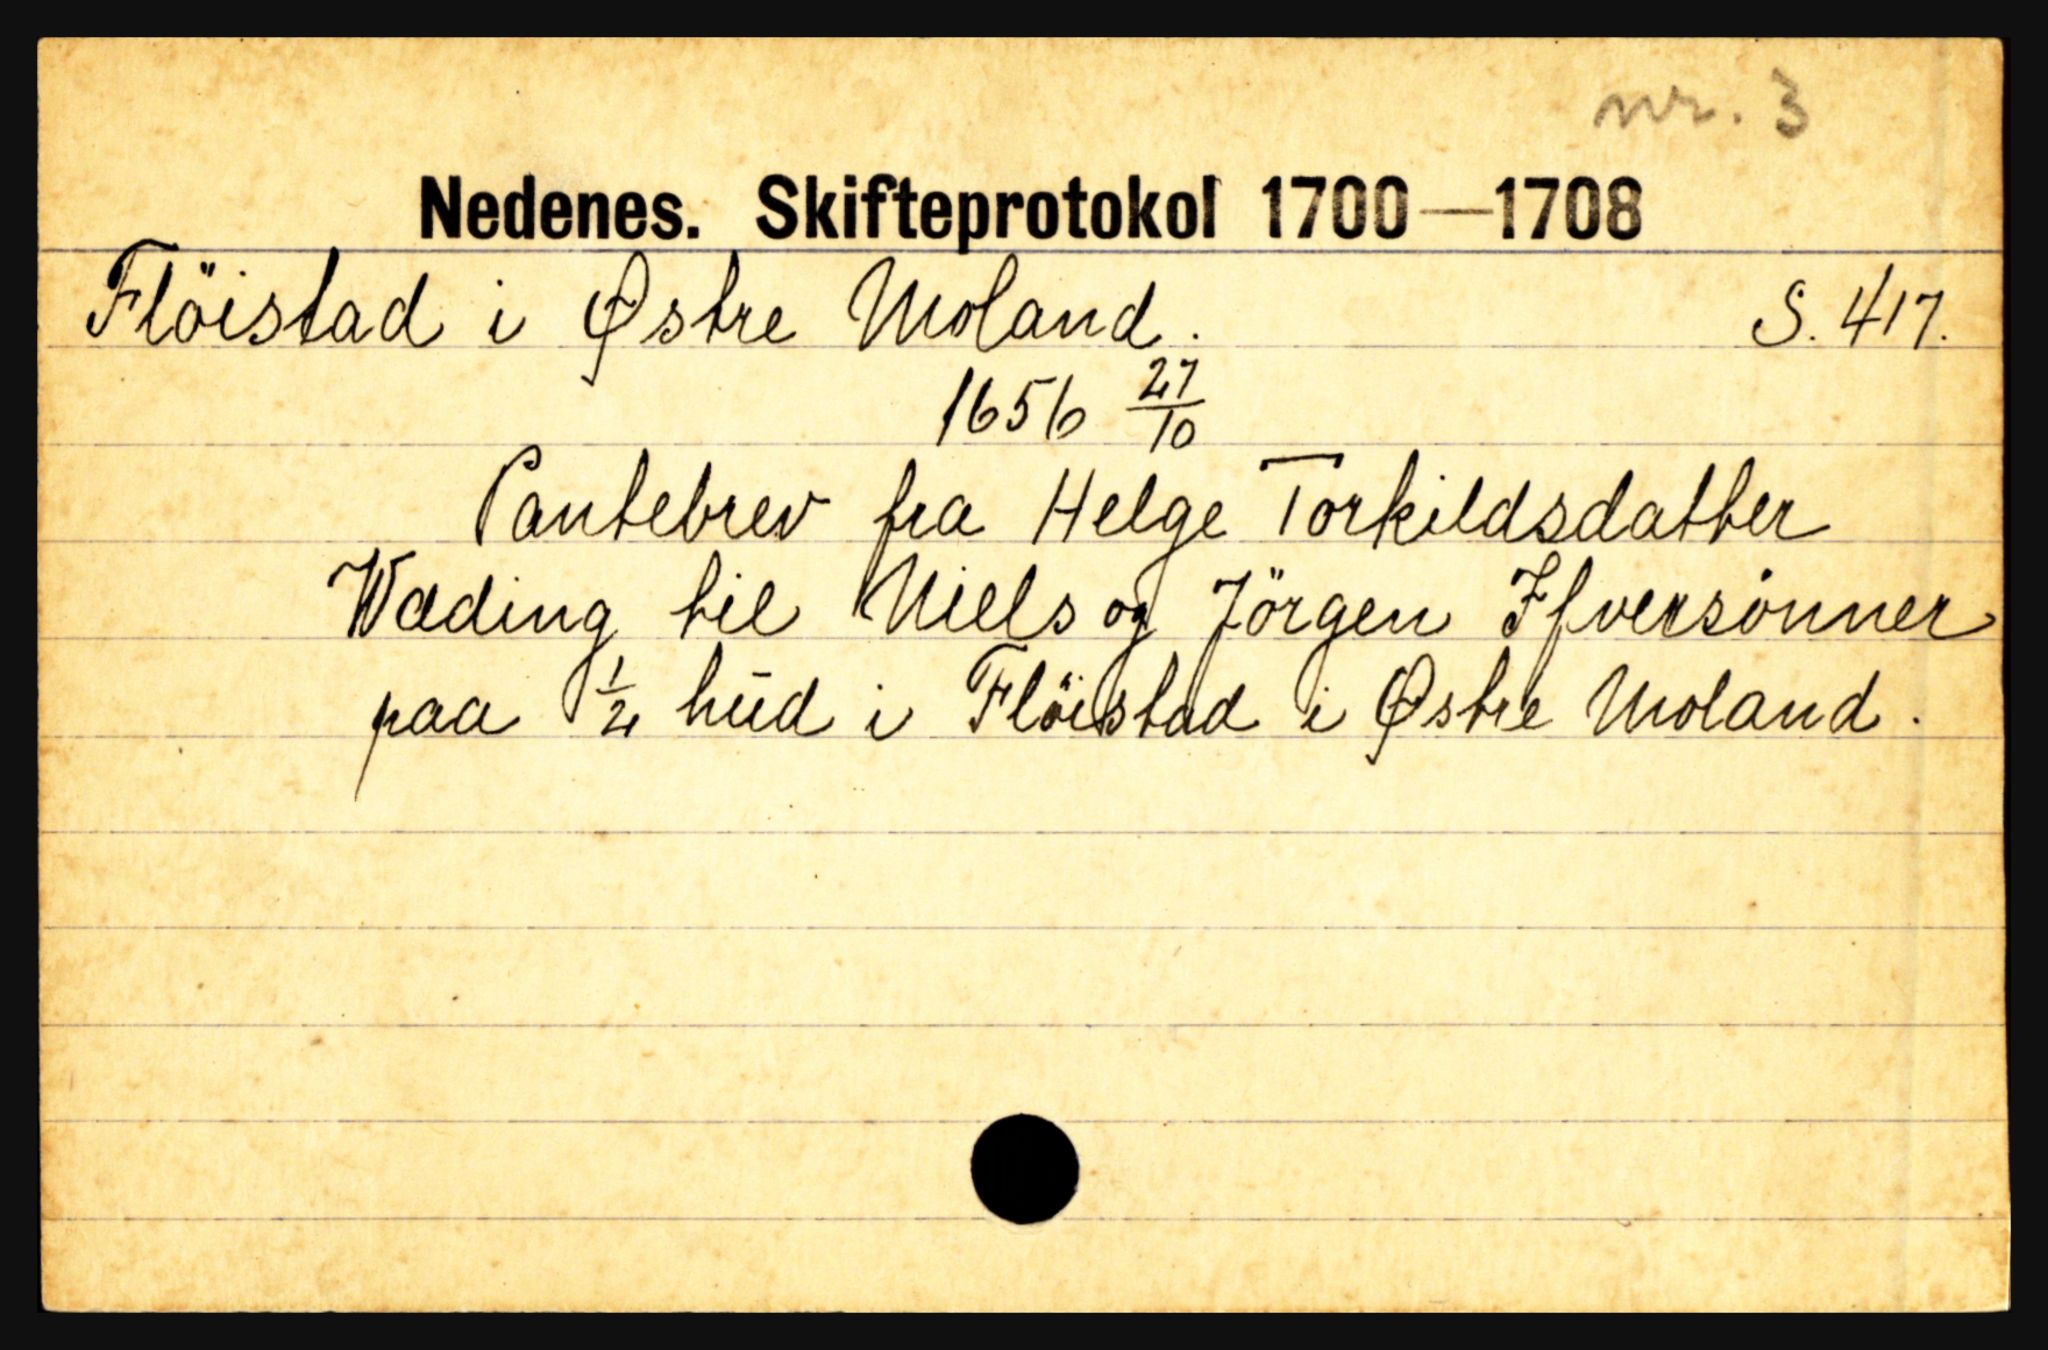 nr. 3
Nedenes. Skifteprotokol 1700—1708
Flöistad i Østre Moland. S. 417.
1656 27/10
Pantebrev fra Helge Torkildsdatter
Wæding til Niels og Jörgen Ifversönner
paa 1/2 hūd i Flöistad i Østre Moland.